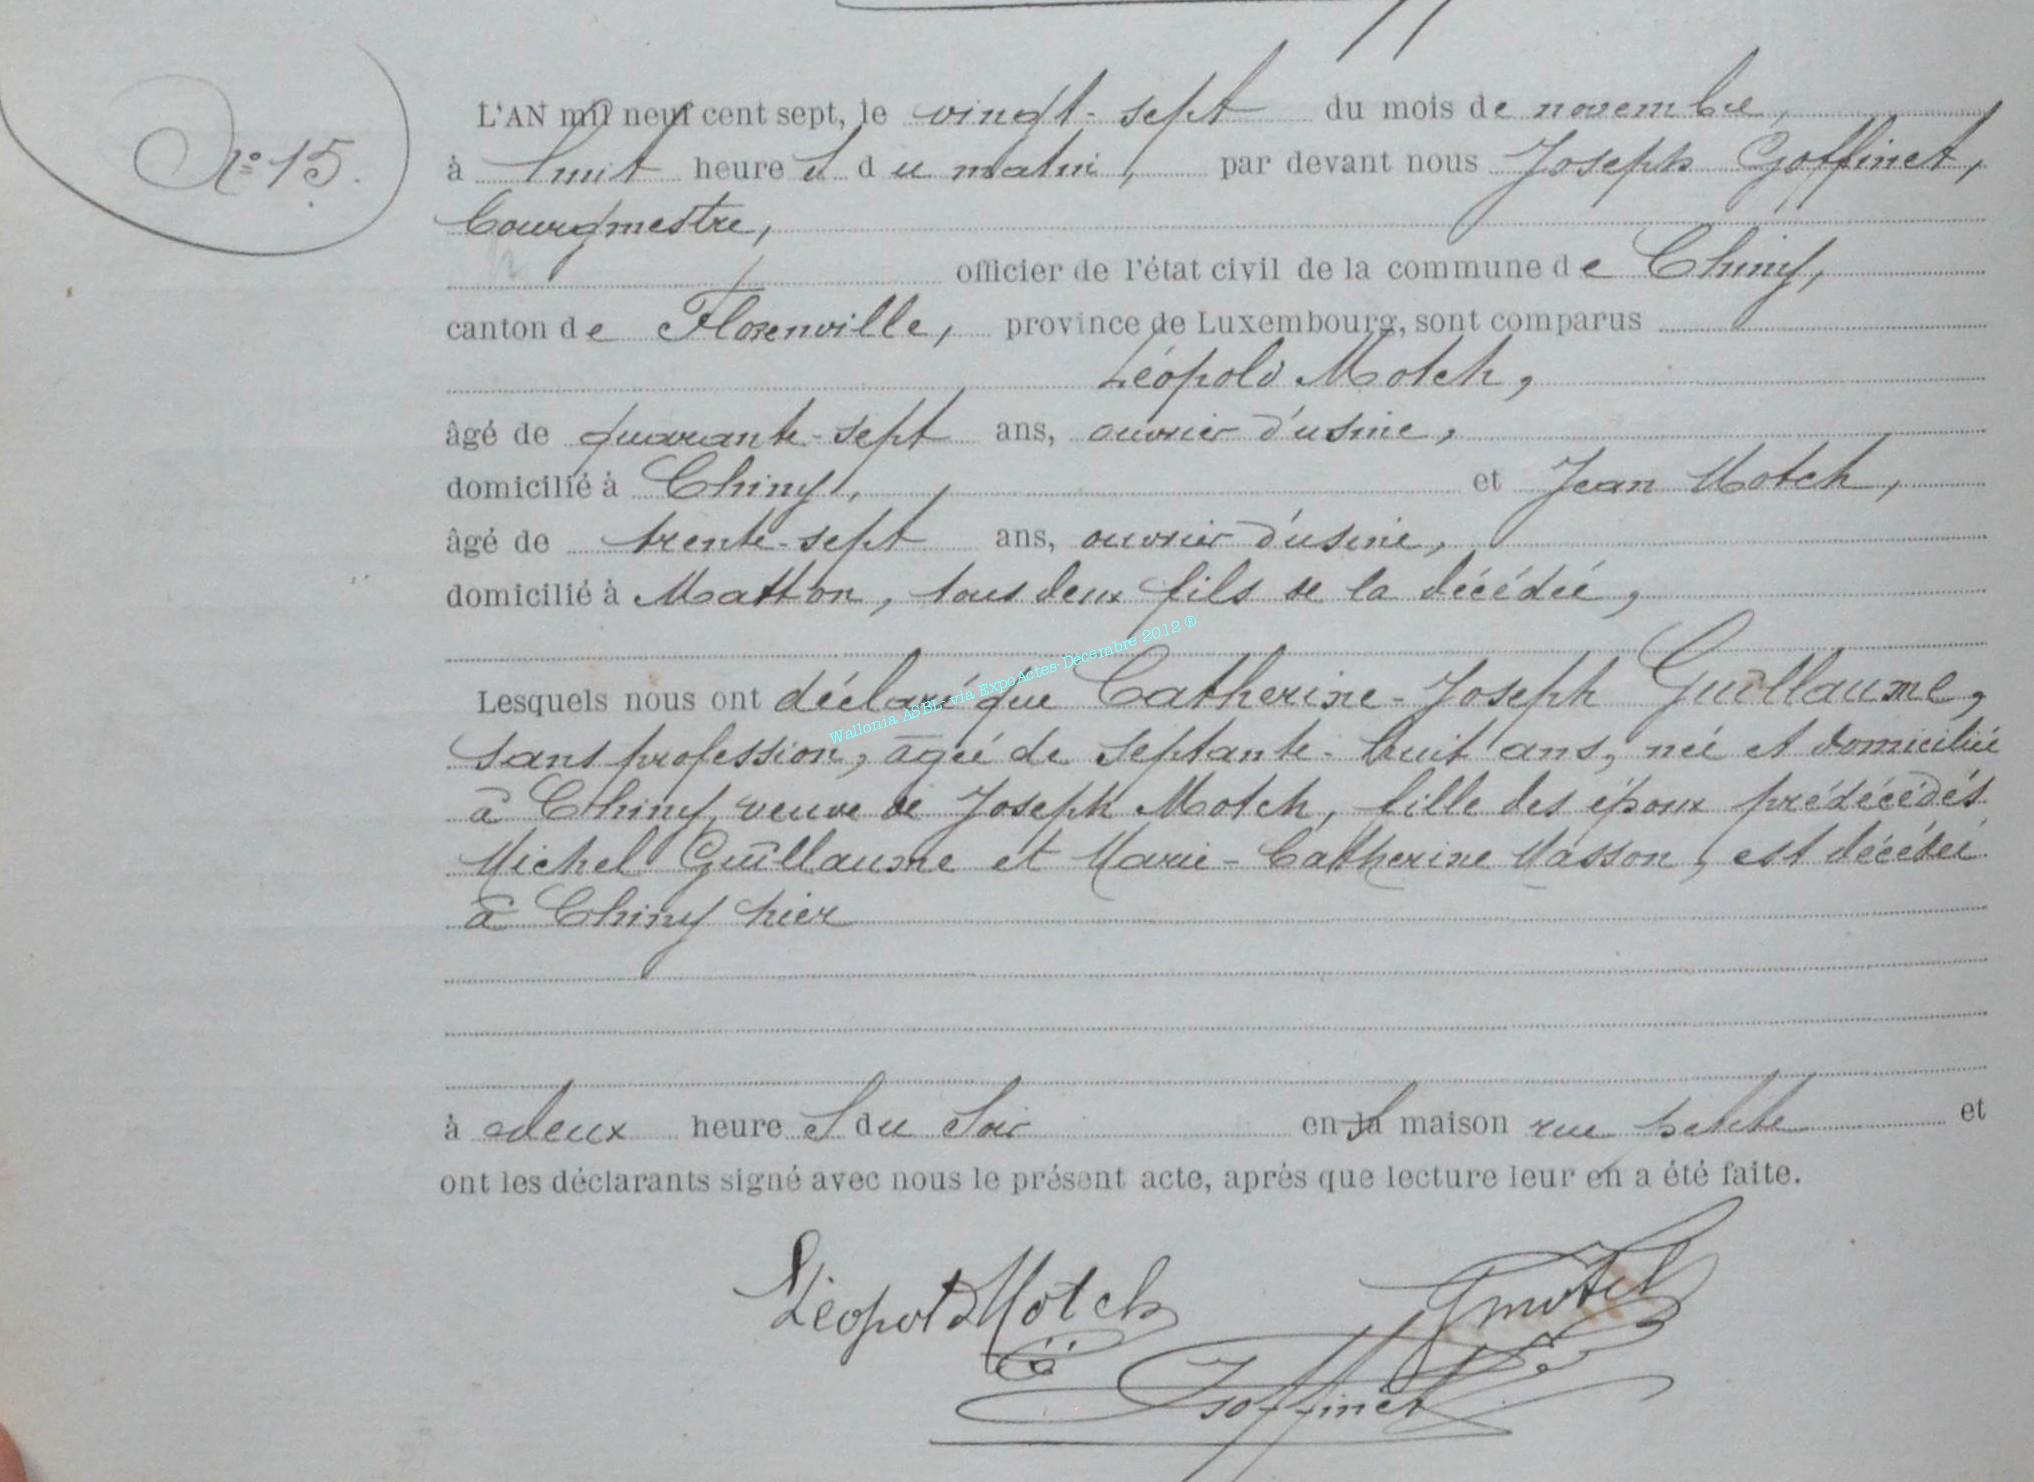 N° 15.
L'AN mil neuf cent sept, le vingt-sept du mois de novembre,
à huit heures du matin, par devant nous Joseph Goffinet,
bourgmestre,
officier de l'état civil de la commune de Chiny,
canton de Florenville, province de Luxembourg, sont comparus
Léopold Motch,
âgé de quarante-sept ans, ouvrier d'usine,
domicilié à Chiny, et Jean Motch,
âgé de trente-sept ans, ouvrier d'usine,
domicilié à Matton, tous deux fils de la décédée,
Lesquels nous ont déclaré que Catherine-Joseph Guillaume,
sans profession, âgée de septante-huit ans, née et domiciliée
à Chiny, veuve de Joseph Motch, fille des époux prédécédés
Michel Guillaume et Marie-Catherine Masson, est décédée
à Chiny hier
à deux heures du soir en sa maison rue petite et
ont les déclarants signé avec nous le présent acte, après que lecture leur en a été faite.
Léopold Motch
JMotch
JGoffinet
Wallonia ASBL- via ExpoActes-Decembre 2012 ®